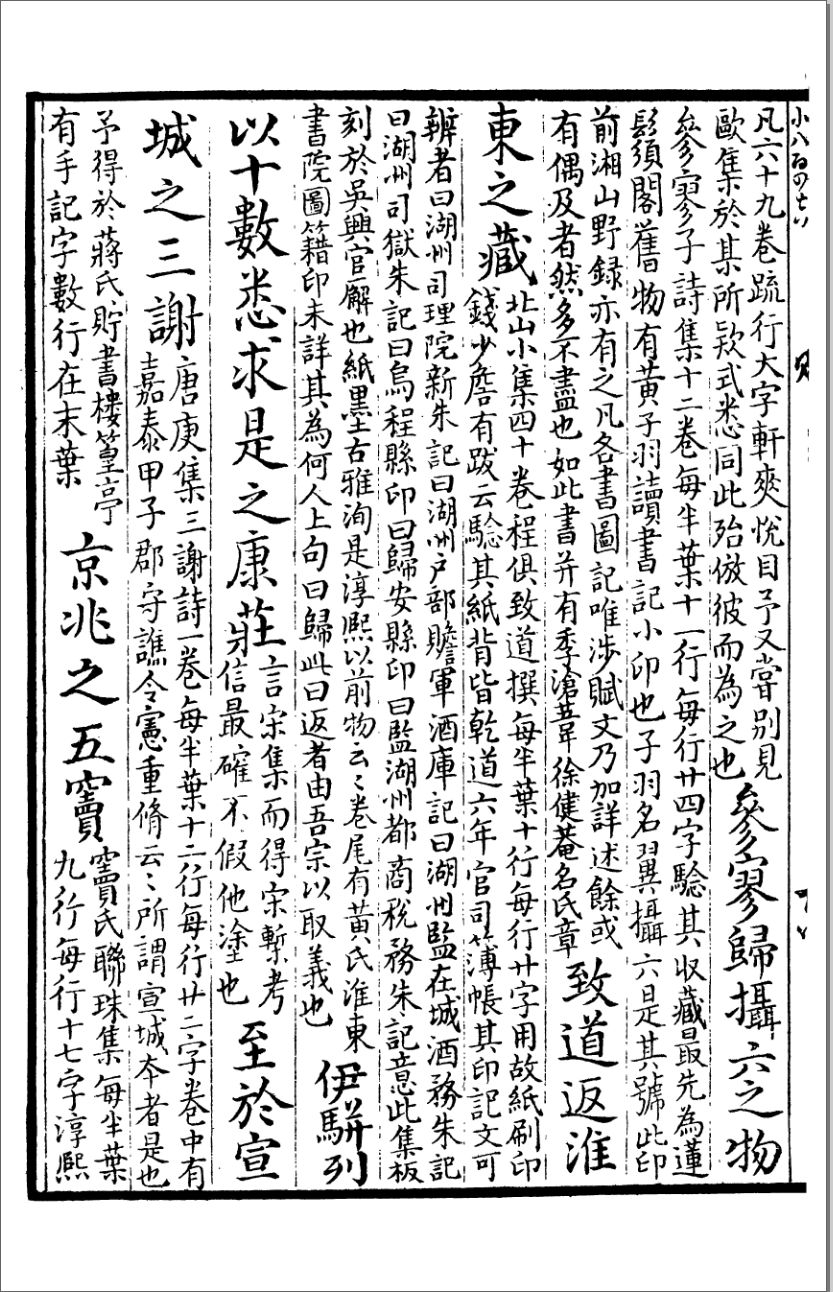 凡六十九卷疏行大字軒爽悅目予又嘗別見
歐集於某所欵式悉同此殆倣彼而為之也
參寥歸攝六之物
參寥子詩集十二卷每半葉十一行每行廿四字驗其收藏最先為蓮
鬚閣舊物有黄子羽讀書記小印也子羽名翼攝六是其號此印
前湘山野録亦有之凡各書圖記唯涉賦文乃加詳述餘或
有偶及者然多不盡也如此書并有季滄葦徐健菴名氏章
致道返淮
東之藏
北山小集四十卷程俱致道撰每半葉十行每行廿字用故紙刷印
錢少詹有跋云驗其紙背皆乾道六年官司簿帳其印記文可
辨者曰湖州司理院新朱記曰湖州户部贍軍酒庫記曰湖州監在城酒務朱記
曰湖州司獄朱記曰烏程縣印曰歸安縣印曰監湖州都商稅務朱記意此集板
刻於吳興官廨也紙墨古雅洵是淳熙以前物云〻卷尾有黄氏淮東
書院圖籍印未詳其為何人上句曰歸此曰返者由吾宗以取義也
伊駢列
以十數悉求是之康莊
言宋集而得宋槧考
信最確不假他塗也
至於宣
城之三謝
唐庚集三謝詩一卷每半葉十二行每行廿二字卷中有
嘉泰甲子郡守譙令憲重脩云〻所謂宣城本者是也
予得於蔣氏貯書樓篁亭
有手記字數行在末葉
京兆之五竇
竇氏聯珠集每半葉
九行每行十七字淳熙